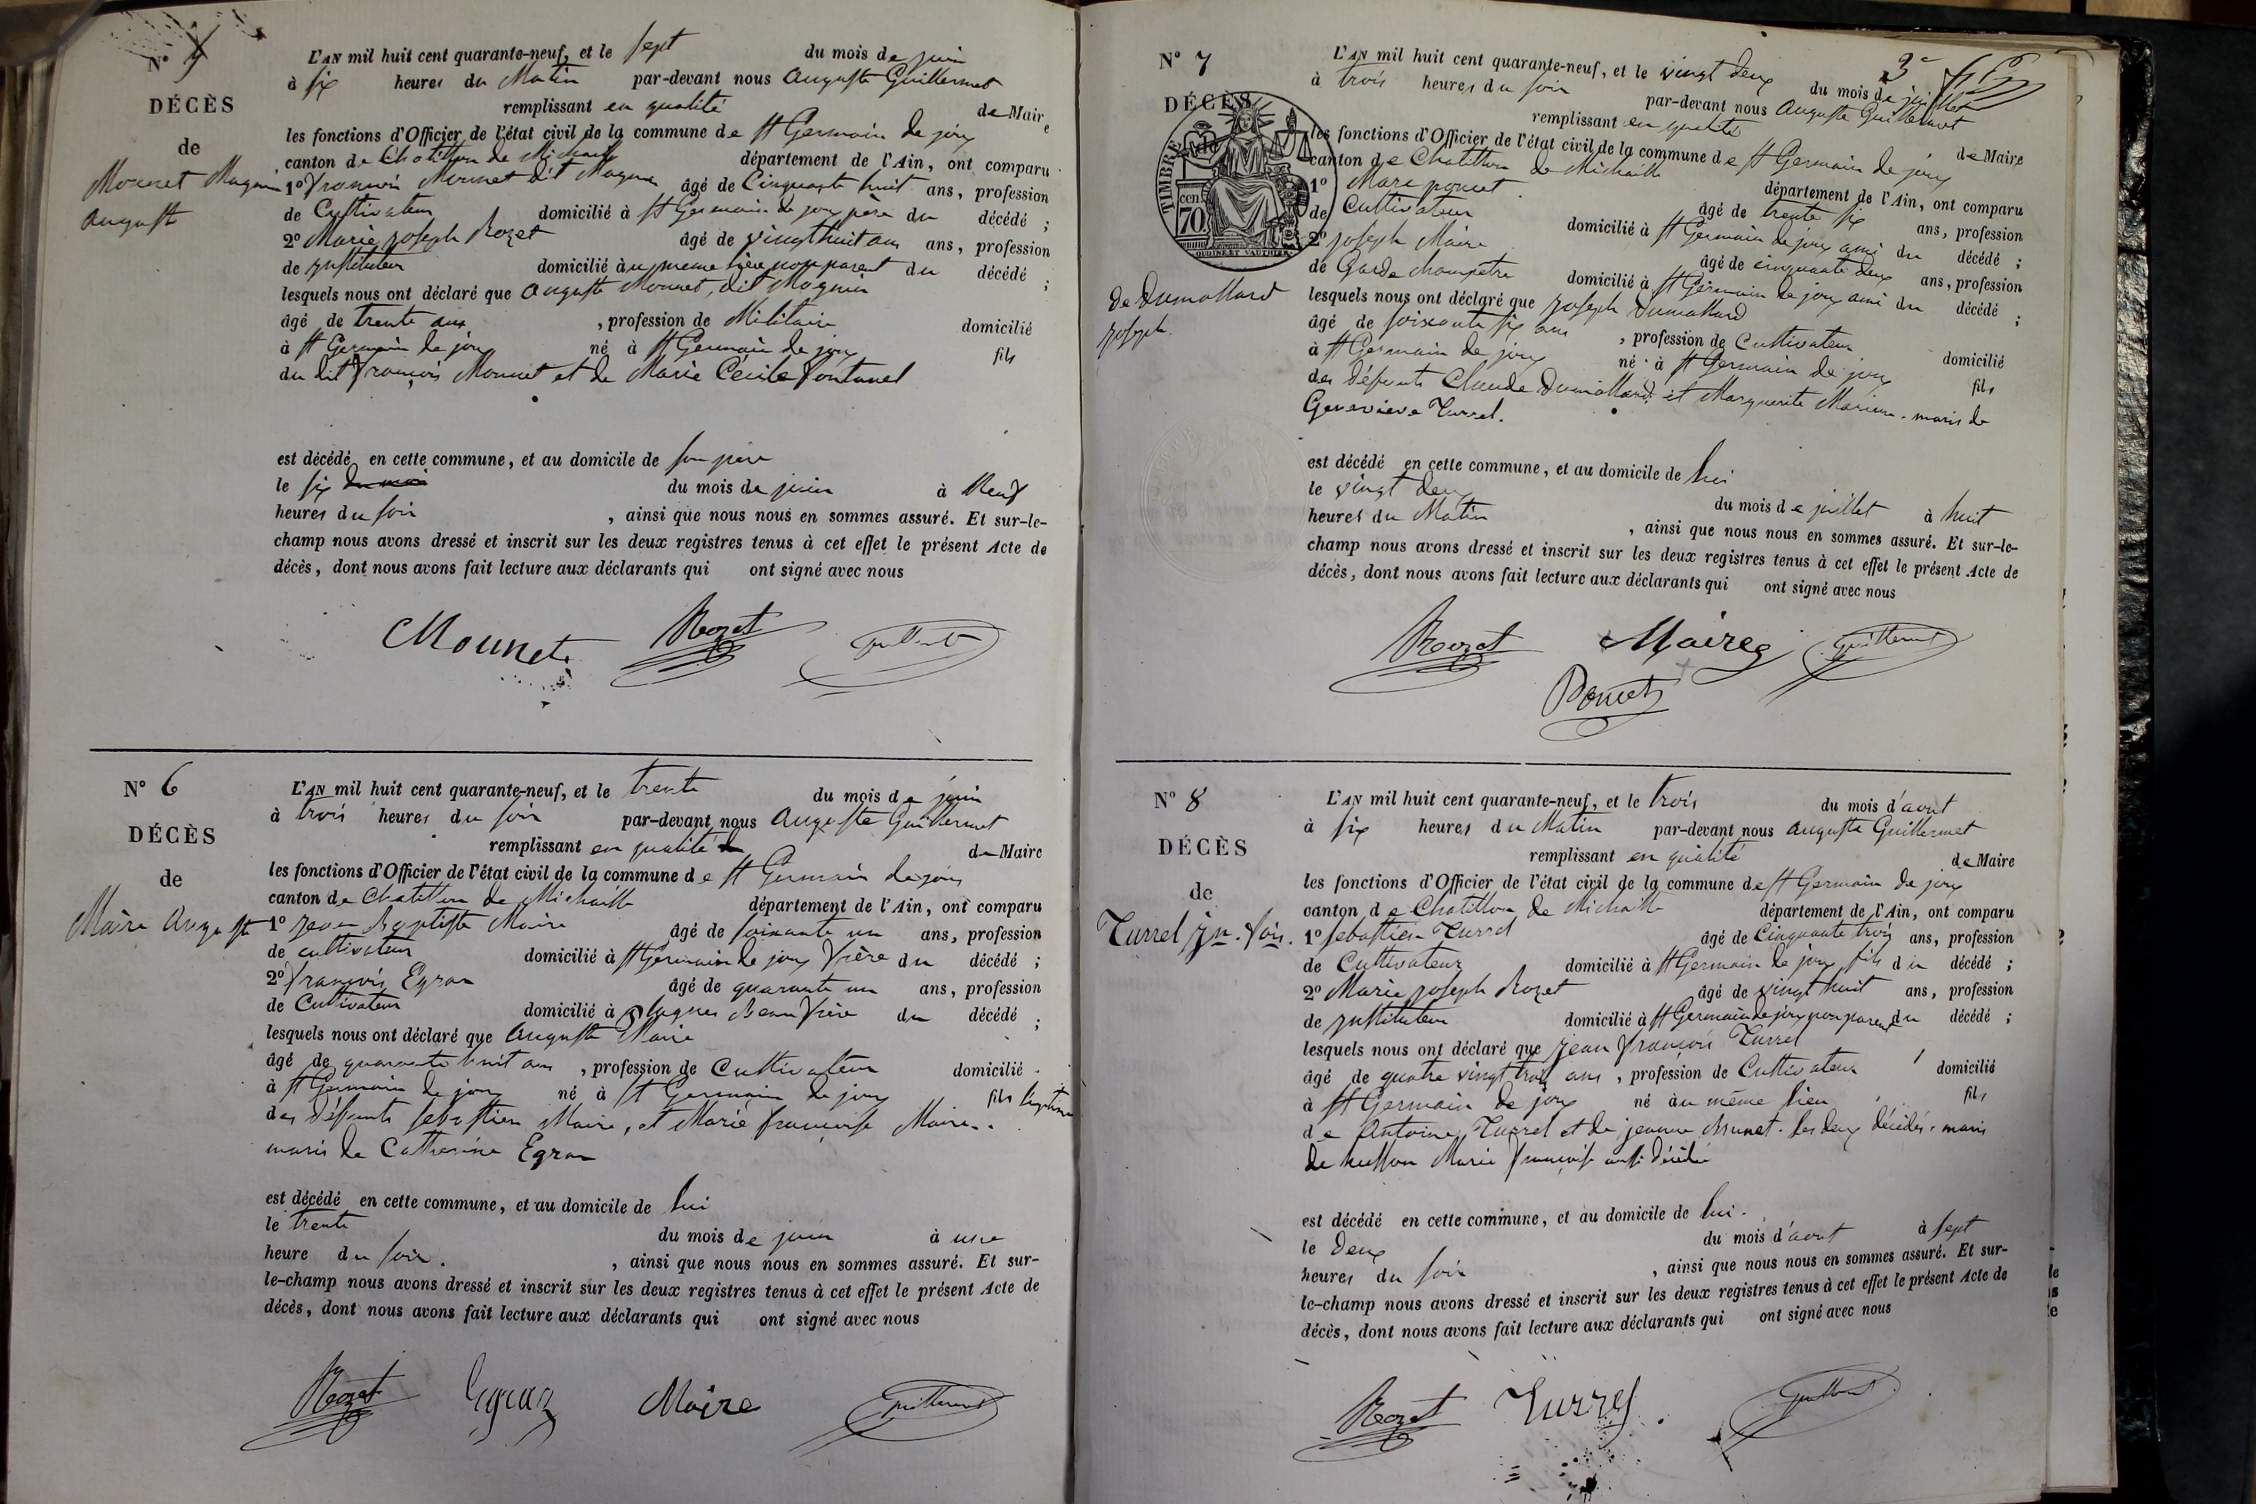 N°
DÉCÈS
de
Mounet Magnin
Auguste
L'AN mil huit cent quarante-neuf, et le sept du mois de juin
à six heures du Matin par-devant nous Auguste Guillermet
remplissant en qualité de Maire
les fonctions d'Officier de l'état civil de la commune de St Germain de joux
canton de Chatillon de Michaille département de l'Ain, ont comparu
1° françois Mounet dit Magnin âgé de Cinquante huit ans, profession
de Cultivateur domicilié à St Germain de joux père du décédé ;
2° Marie joseph Rozet âgé de vingt huit ans ans, profession
de instituteur domicilié au meme lieu non parent du décédé ;
lesquels nous ont déclaré que Auguste Mounet, dit Magnin
âgé de trente ans , profession de Militaire domicilié
à St Germain de joux né à St Germain de joux fils
du dit françois Mounet et de Marie Cecile fontanel
est décédé en cette commune, et au domicile de son père
le six du mois de juin à Neuf
heures du soir , ainsi que nous nous en sommes assuré. Et sur-le-
champ nous avons dressé et inscrit sur les deux registres tenus à cet effet le présent Acte de
décès, dont nous avons fait lecture aux déclarants qui ont signé avec nous
Mounet Rozet Guillermet
N° 6
DÉCÈS
de
Maire Auguste
L'AN mil huit cent quarante-neuf, et le trente du mois de juin
à trois heures du soir par-devant nous Auguste Guillermet
remplissant en qualité de Maire
les fonctions d'Officier de l'état civil de la commune de St Germain de joux
canton de Chatillon de Michaille département de l'Ain, ont comparu
1° jean Baptiste Maire âgé de soixante un ans, profession
de cultivateur domicilié à St Germain de joux frère du décédé ;
2° françois Egraz âgé de quarante un ans, profession
de Cultivateur domicilié à Plagnes Beau frère du décédé ;
lesquels nous ont déclaré que Auguste Maire
âgé de quarante huit ans , profession de Cultivateur domicilié
à St Germain de joux né à St Germain de joux fils légitime
des défunts sebastien Maire, et Marie françoise Maire.
maris de Catherine Egraz
est décédé en cette commune, et au domicile de lui
le trente du mois de juin à une
heure du soir. , ainsi que nous nous en sommes assuré. Et sur-
le-champ nous avons dressé et inscrit sur les deux registres tenus à cet effet le présent Acte de
décès, dont nous avons fait lecture aux déclarants qui ont signé avec nous
Rozet Egraz Maire Guillermet
3e
N° 7
DÉCÈS
TIMBRE
70 cen
OUDINE ET VAUTHIER
de Dumollard
joseph.
L'AN mil huit cent quarante-neuf, et le vingt deux du mois de juillet
à trois heures du soir par-devant nous Auguste Guillermet
remplissant en qualité de Maire
les fonctions d'Officier de l'état civil de la commune de St Germain de joux
canton de Chatillon de Michaille département de l'Ain, ont comparu
1° Marc poncet âgé de trente six ans, profession
de Cultivateur domicilié à St Germain de joux ami du décédé ;
2° joseph Maire âgé de cinquante deux ans, profession
de Garde champetre domicilié à St Germain de joux ami du décédé ;
lesquels nous ont déclaré que joseph Dumollard
âgé de soixante six ans , profession de Cultivateur domicilié
à St Germain de joux né à St Germain de joux fils
des défunts Claude Dumollard et Marguerite . maris de
Genevieve Turrel.
est décédé en cette commune, et au domicile de lui
le vingt deux du mois de juillet à huit
heures du Matin , ainsi que nous nous en sommes assuré. Et sur-le-
champ nous avons dressé et inscrit sur les deux registres tenus à cet effet le présent Acte de
décès, dont nous avons fait lecture aux déclarants qui ont signé avec nous
Rozet Maire Guillermet
Poncet
N° 8
DÉCÈS
de
Turrel jn. fois.
L'AN mil huit cent quarante-neuf, et le trois du mois d'aout
à six heures du Matin par-devant nous Auguste Guillermet
remplissant en qualité de Maire
les fonctions d'Officier de l'état civil de la commune de St Germain de joux
canton de Chatillon de Michaille département de l'Ain, ont comparu
1° sebastien Turrel âgé de Cinquante trois ans, profession
de Cultivateur domicilié à St Germain de joux fils du décédé ;
2° Marie joseph Rozet âgé de vingt huit ans, profession
de instituteur domicilié à St Germain de joux non parent du décédé ;
lesquels nous ont déclaré que jean françois Turrel
âgé de quatre vingt trois ans , profession de Cultivateur domicilié
à St Germain de joux né au même lieu fils
de Antoine Turrel et de jeanne . les deux décédés. maris
de Marie françoise aussi décédée
est décédé en cette commune, et au domicile de lui.
le deux du mois d'aout à sept
heures du soir , ainsi que nous nous en sommes assuré. Et sur-
le-champ nous avons dressé et inscrit sur les deux registres tenus à cet effet le présent Acte de
décès, dont nous avons fait lecture aux déclarants qui ont signé avec nous
Rozet Turrel Guillermet